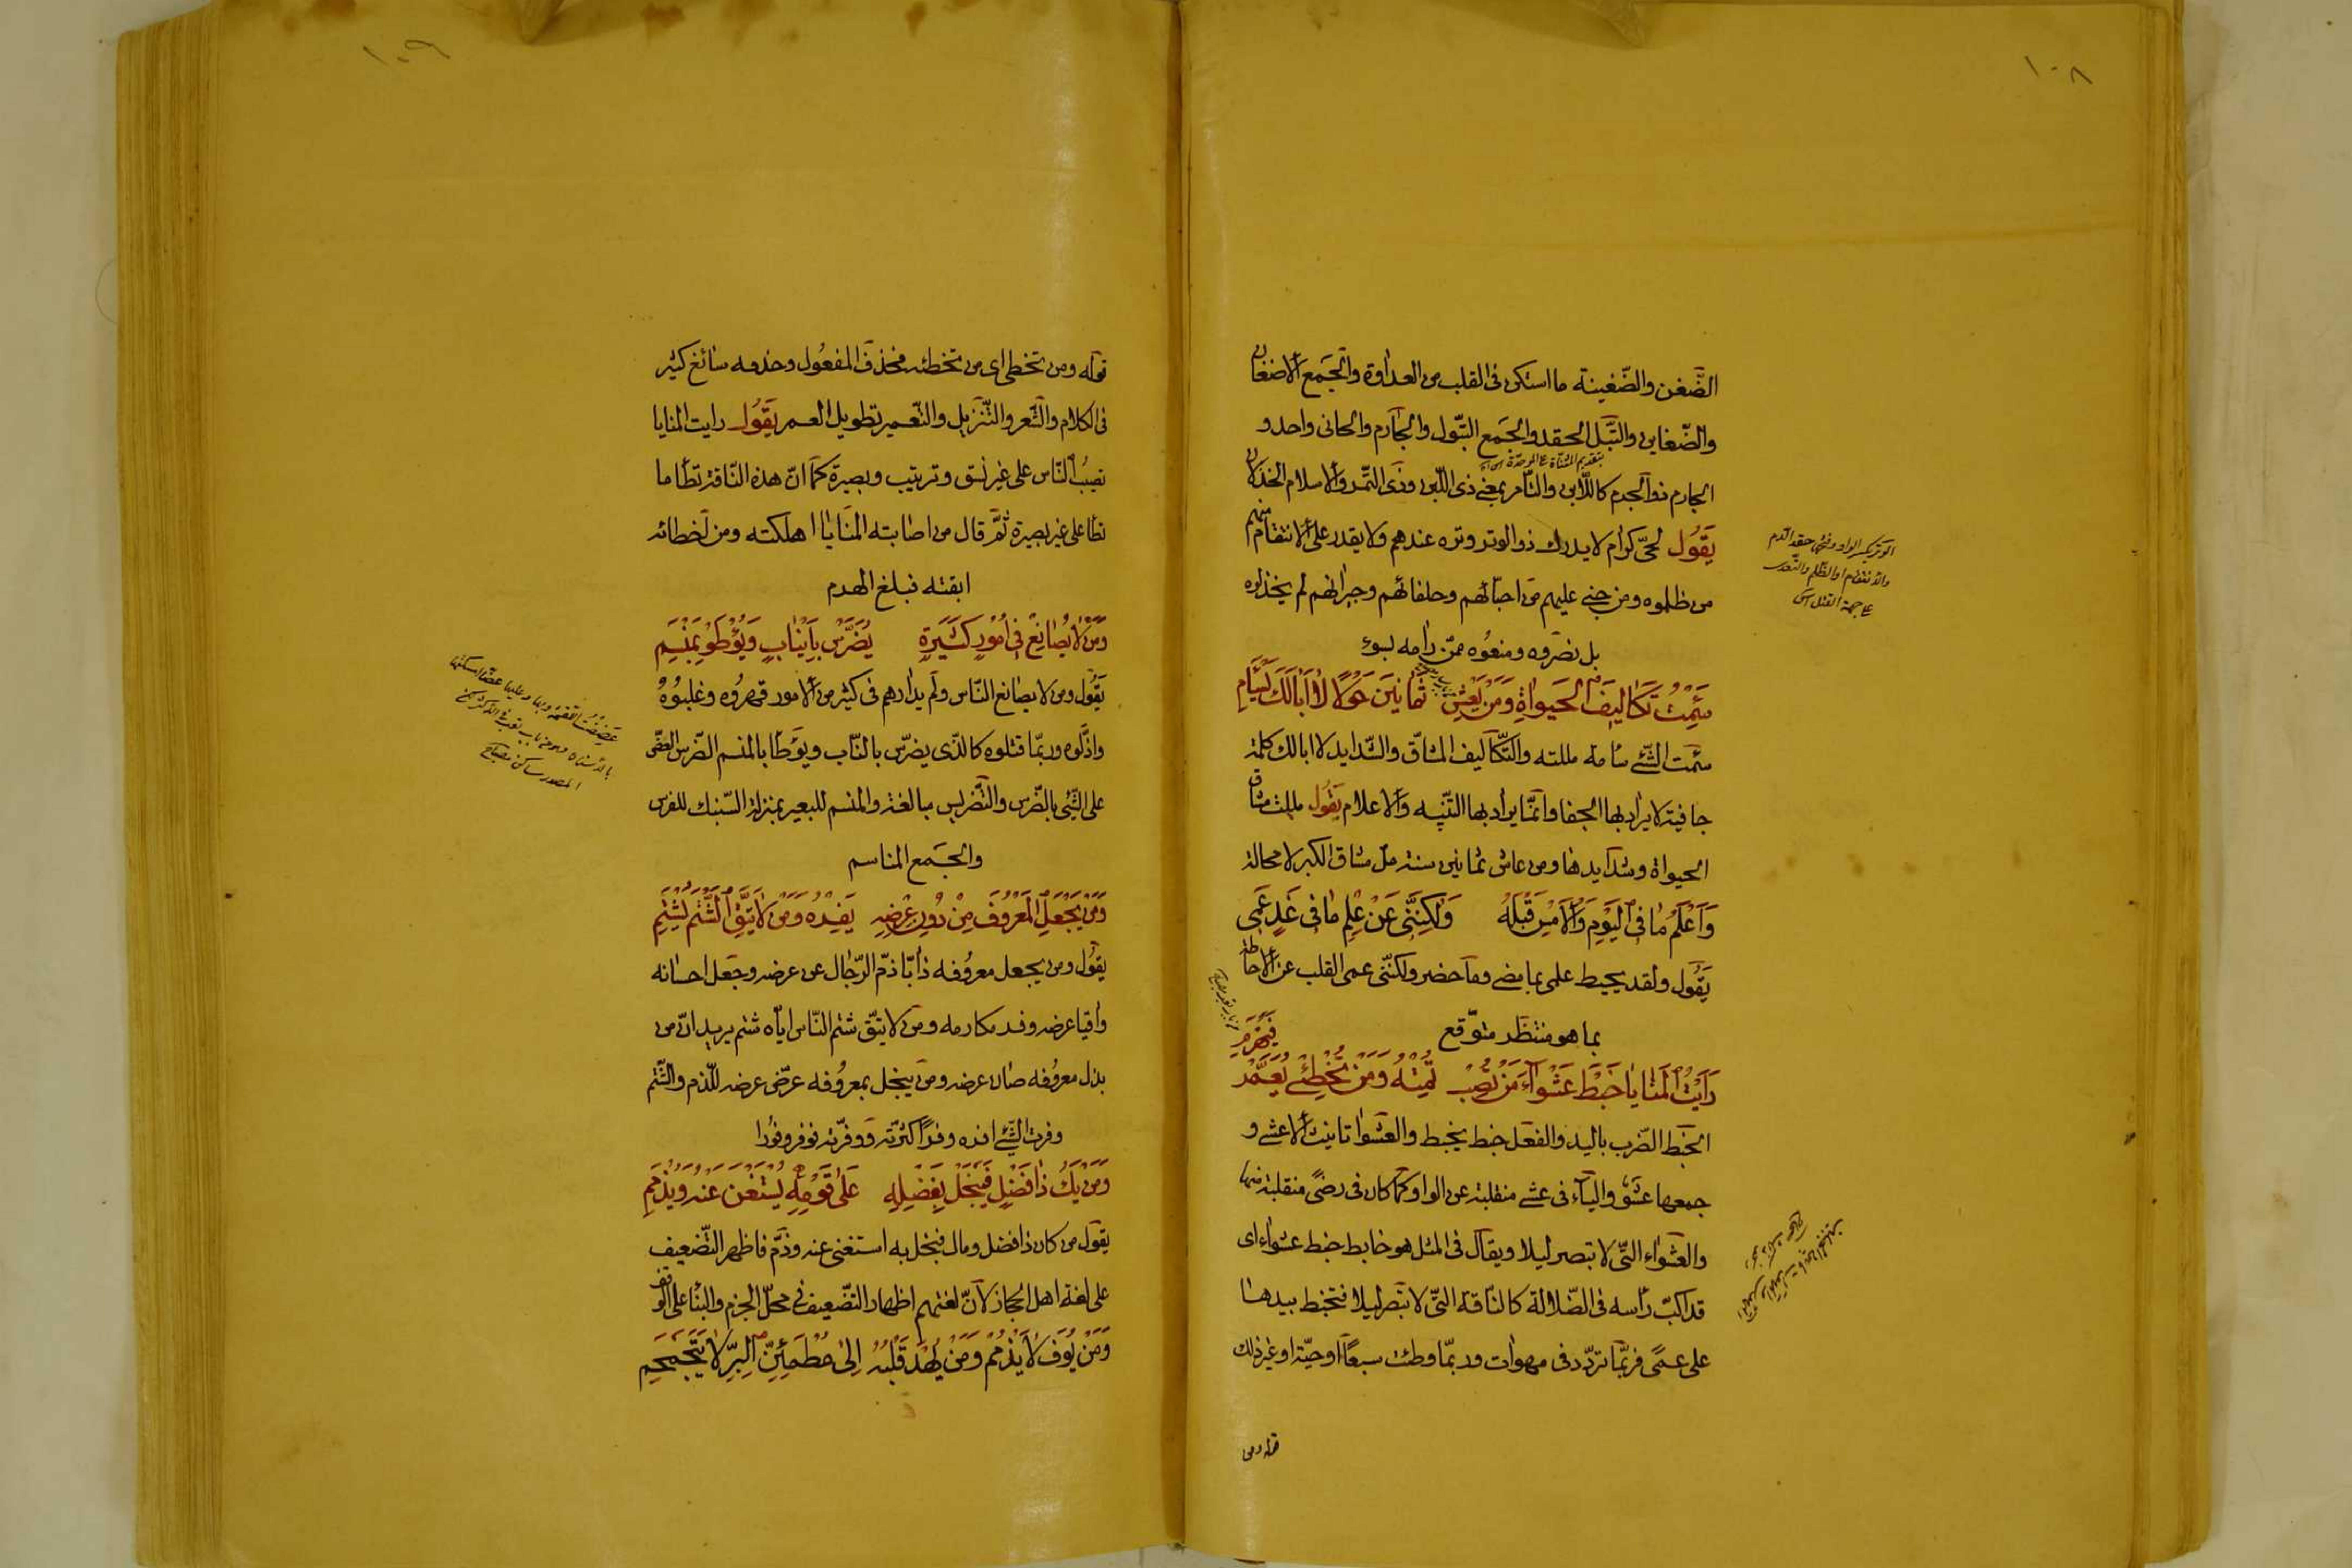 ١٠٨
الضّغن والضّغينة ما استكن فى القلب من العداوة والجمع الاضغان
والضّغاين والتّبل الحقد والجمع التبّول والجارم والجانى واحد و
بتقديم المثنّاة على الموحّدة
الجارم ذو الجرم كاللّابن والتّامر بمعنى ذى اللّبن وذى التّمر والاسلام الخذلان
يَقُول لحىّ كرام لا يدرك ذو الوتر وتره عندهم ولا يقدر على الانتقام منهم
من ظلموه ومن جنى عليهم من احبّائهم وحلفائهم وجيرانهم لم يخذلوه
بل نصروه ومنعُوه ممّن رامه بسوء
الوتر بكسر الواو وفتحها حقد الدم
والانتقام او الظّلم والتّعدى
سَئِمْتُ تَكَالِيفَ الْحَيٰوةِ وَمَنْ يَعِشْ ثَمَانِينَ حَوْلًا لَا اَبَالَكَ يَسْئَامِ
سئمت الشّئ سئامة مللته والتّكاليف المشاقّ والشّدايد لا ابالك كلمة
جافية لا يراد بها الجفا وانّما يراد بها التّنبيه والاعلام يَقُول مللت مشاق
الحيواة وشدايدها ومن عاش ثمانين سنة ملّ مشاق الكبر لا محالة
وَاَعْلَمُ مَا فِى الْيَوْمِ وَالْاَمْسِ قَبْلَهُ وَلٰكِنَّنِى عَنْ عِلْمِ مَا فِى غَدٍ عَمِى
يَقُول ولقد يحيط علمى بما مضى وما حضر ولكنّنى عمى القلب عن الاحاطة
بما هو منتظر متوقّع
رَاَيْتُ الْمَنَايَا خَبْطَ عَشْوَآءَ مَنْ تُصِبْ تُمِتْهُ وَمَنْ تُخْطِئْ يُعَمَّرْ فَيَهْرَمِ
الخبط الضّرب باليد والفعل خبط يخبط والعشوا تانيث الاعشى و
جمعها عشو والياء فى عشى منقلبة عن الواو كما كان فى رضى منقلبة عنها
والعشواء التّى لا تبصر ليلا ويقال فى المثل هو خابط خبط عشواء اى
قد اكبّ رأسه فى الضّلالة كالنّاقة التّى لا تبصر ليلا فتخبط بيدها
على عمًى فربّما تردّد فى مهوات وربّما وطئت سبعًا او حيّة او غير ذلك
قوله ومن
١٠٩
قوله ومن تخطى اى من تخطئه فحذف المفعُول وحذفه سائغ كثير
فى الكلام والشّعر والتّنزيل والتّعمير تطويل العمر يَقُول رايت المنايا
تصيبُ النّاس على غير نسق وترتيب وبصيرة كما انّ هذه النّاقة تطأ ما
تطأ على غير بصيرة ثمّ قال من اصابته المنايا اهلكته ومن اخطائه
ابقته فبلغ الهدم
وَمَنْ لَا يُصَانِعْ فِى اُمُورٍ كَثِيرَةٍ يُضَرَّسْ بِاَنْيَابٍ وَيُوْطَوْ بِمَنْسِمِ
يَقُول ومن لا يصانع النّاس ولم يدارهم فى كثير من الامور قهروُه وغلبوُهُ
واذلّوه وربّما قتلوه كالذّى يضرّس بالنّاب ويوطأ بالمنسم الضّرس العضّ
على الشّئ بالضّرس والتّضريس مبالغة والمنسم للبعير بمنزلة السّنبك للفرس
والجمع المناسم
وَمَنْ يَجْعَلِ الْمَعْرُوفَ مِنْ دُونِ عِرْضِهِ يَفِرْهُ وَمَنْ لَا يَتَّقِ الشَّتْمَ يُشْتَمِ
يَقُول ومن يجعل معروُفه ذابّا ذمّ الرّجال عن عرضه وجعل احسانه
واقيا عرضه وفر مكارمه ومن لا يتّق شتم النّاس ايّاه شتم يريد انّ من
بذل معروُفه صان عرضه ومن يبخل بمعروُفه عرّض عرضه للذّم والشّتم
وفرت الشّئ افره وفرًا اكثرته ووفرته فوفر وفورا
وَمَنْ يَكُ ذَا فَضْلٍ فَيَبْخَلْ بِفَضْلِهِ عَلٰى قَوْمِهِ يُسْتَغْنَ عَنْهُ وَيُذْمَمِ
يَقُول من كان ذا فضل ومال فبخل به استغنى عنه وذمّ فاظهر التّضعيف
على لغة اهل الحجاز لانّ لغتهم اظهار التّضعيف فى محلّ الجزم والبنا على الوقف
وَمَنْ يُوفِ لَا يُذْمَمْ وَمَنْ يُهْدَ قَلْبُهُ اِلٰى مُطْمَئِنِّ الْبِرِّ لَا يَتَجَمْجَمِ